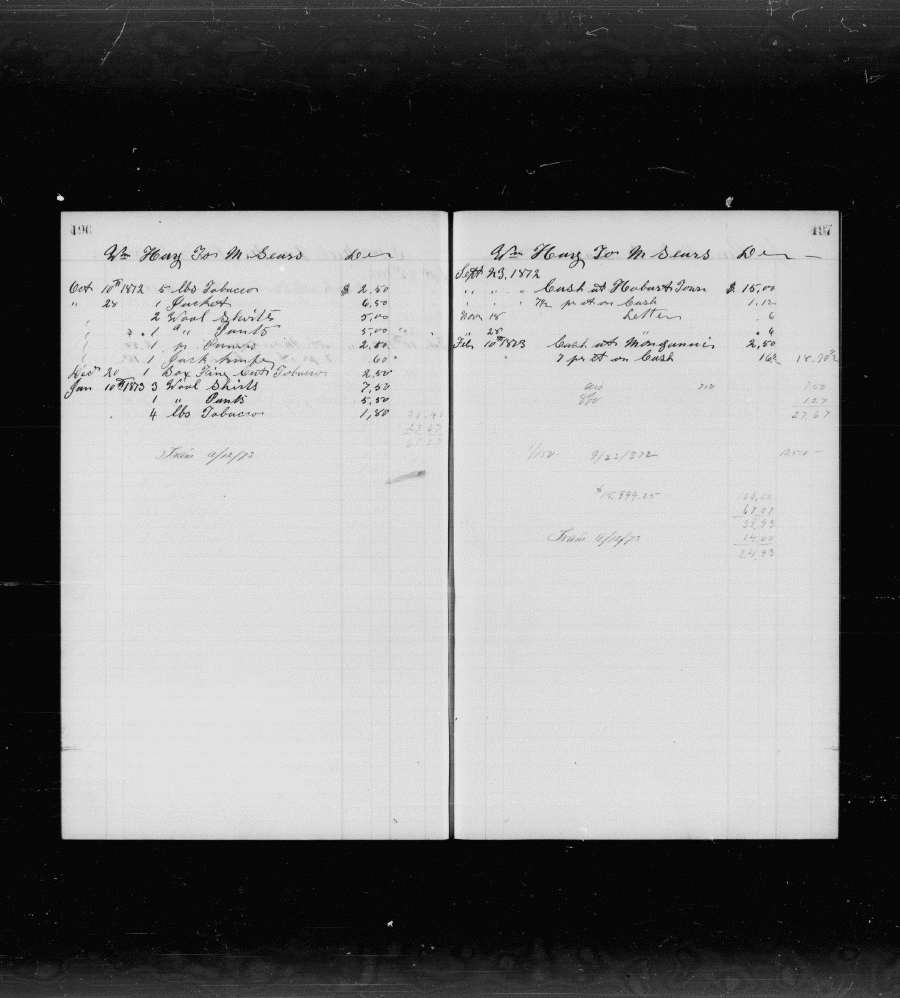 196
Wm Hay For M Sears Der
Oct 10th 1872 5 lbs Tobacco $ 2.50
" 28 1 Jacket 6,50
" 2 Wool Shirts 5,00
" " 1 " Pants 5,00
" 1 pr Drawers 2.50
" 1 Jack Knife 60
Dec 20 1 Box Fine Cut Tobacco 2,50
Jan 10th 1873 3 Wool Shirts 7,50
1 " Pants 5,50
4 lbs Tobacco 1,80
27.67
4/12/73
197
Wm Hay For M Sears Der
Sept 23, 1872
" " " Cash at Hobart Town $ 15,00
" " " 7½ pr ct on Cash 1.12
Nov 18 Letter . 6
" 28 " . 6
Feb 10th 1873 Cash at Monganni 2,50
7 pr ct on Cash
7.50
27.67
1/150. 9/23/1872
$15,999.05
106,00
67.07
38,93
14,00
4/12/73
24,93